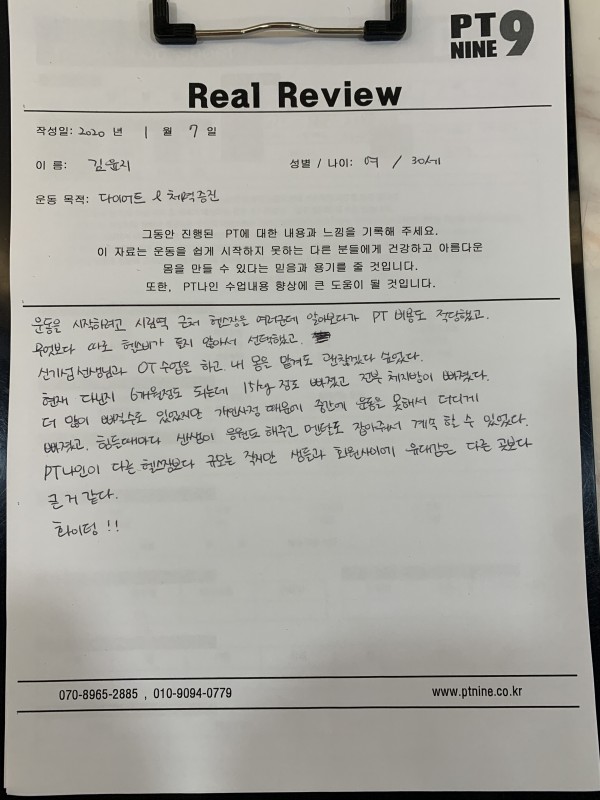 PT NINE 9
Real Review
작성일: 2020 년 1 월 7 일
이 름: 김윤지 성별 / 나이: 여 / 30세
운동 목적: 다이어트 & 체력증진
그동안 진행된 PT에 대한 내용과 느낌을 기록해 주세요.
이 자료는 운동을 쉽게 시작하지 못하는 다른 분들에게 건강하고 아름다운
몸을 만들 수 있다는 믿음과 용기를 줄 것입니다.
또한, PT나인 수업내용 향상에 큰 도움이 될 것입니다.
운동을 시작하려고 시림역 근처 헬스장을 여러군데 알아보다가 PT 비용도 적당했고.
무엇보다 따로 헬스비가 들지 않아서 선택했고.
신기섭선생님과 OT수업을 하고. 내 몸을 맡겨도 괜찮겠다 싶었다.
현재 다닌지 6개월정도 되는데 15kg 정도 빠졌고 전복 체지방이 빠졌다.
더 많이 빠질수도 있었지만 개인사정 때문에 중간에 운동을 못해서 더디게
빠졌고. 힘든때마다 쌤들이 응원도 해주고 멘탈도 잡아줘서 계속 할 수 있었다.
PT나인이 다른 헬스장보다 규모는 적지만 쌤들과 회원사이에 유대감은 다른 곳보다
큰 거 같다.
화이텅 !!
070-8965-2885 , 010-9094-0779 www.ptnine.co.kr